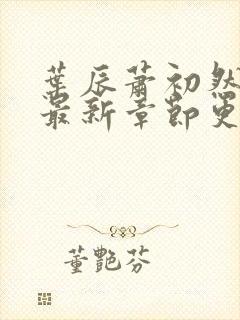 葉辰蕭初然
最新章節更
董艷芬